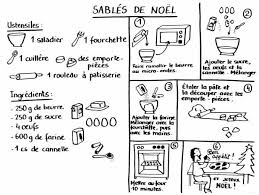 SABLÉS DE NOËL
Ustensiles:
1 saladier
1 fourchette
1 cuillère
des emporte-
pièces
1 rouleau à pâtisserie
Ingrédients:
- 250 g de beurre
- 250 g de sucre
- 4 oeufs
- 600 g de farine
- 1 cs de cannelle
1
Faire ramollir le beurre
au micro-ondes.
2
Ajouter le sucre,
les oeufs et la
cannelle. Mélanger
3
Ajouter la farine.
Mélanger avec la
fourchette, puis
avec les mains.
4
Étaler la pâte et
la découper avec les
emporte-pièces.
5
Mettre au four
10 minutes.
6
Bon appétit!
ET JOYEUX
NOËL!